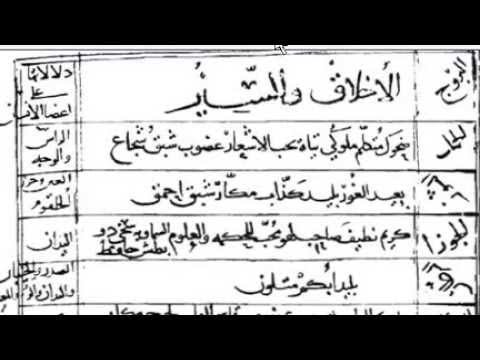 البروج الأخلاق والسير دلالاتها
على
اعضا الانسان
الحمل ضحوك متكلم ملوكي تياه يحب الاشعار غضوب شبق شجاع الراس
والوجه
الثور بعيد الغور بليد كذاب مكار شبق احمق
الحلقوم
الجوزا كريم نظيف صاحب لهو محب للحكمه والعلوم السماويه سخي ذو اليدان
بطش حافظ
بليد ابكم متلون الصدر